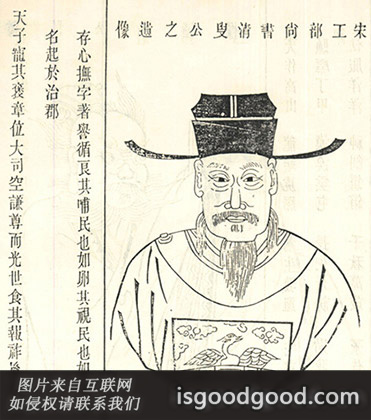 宋工部尚書清叟公之遺像
存心撫字著譽循良其哺民也如卵其視民也如
名起於治郡
天子寵其褒章位大司空謙尊而光世食其報祚
图片来自互联网
如侵权请联系我们
isgoodgood.com